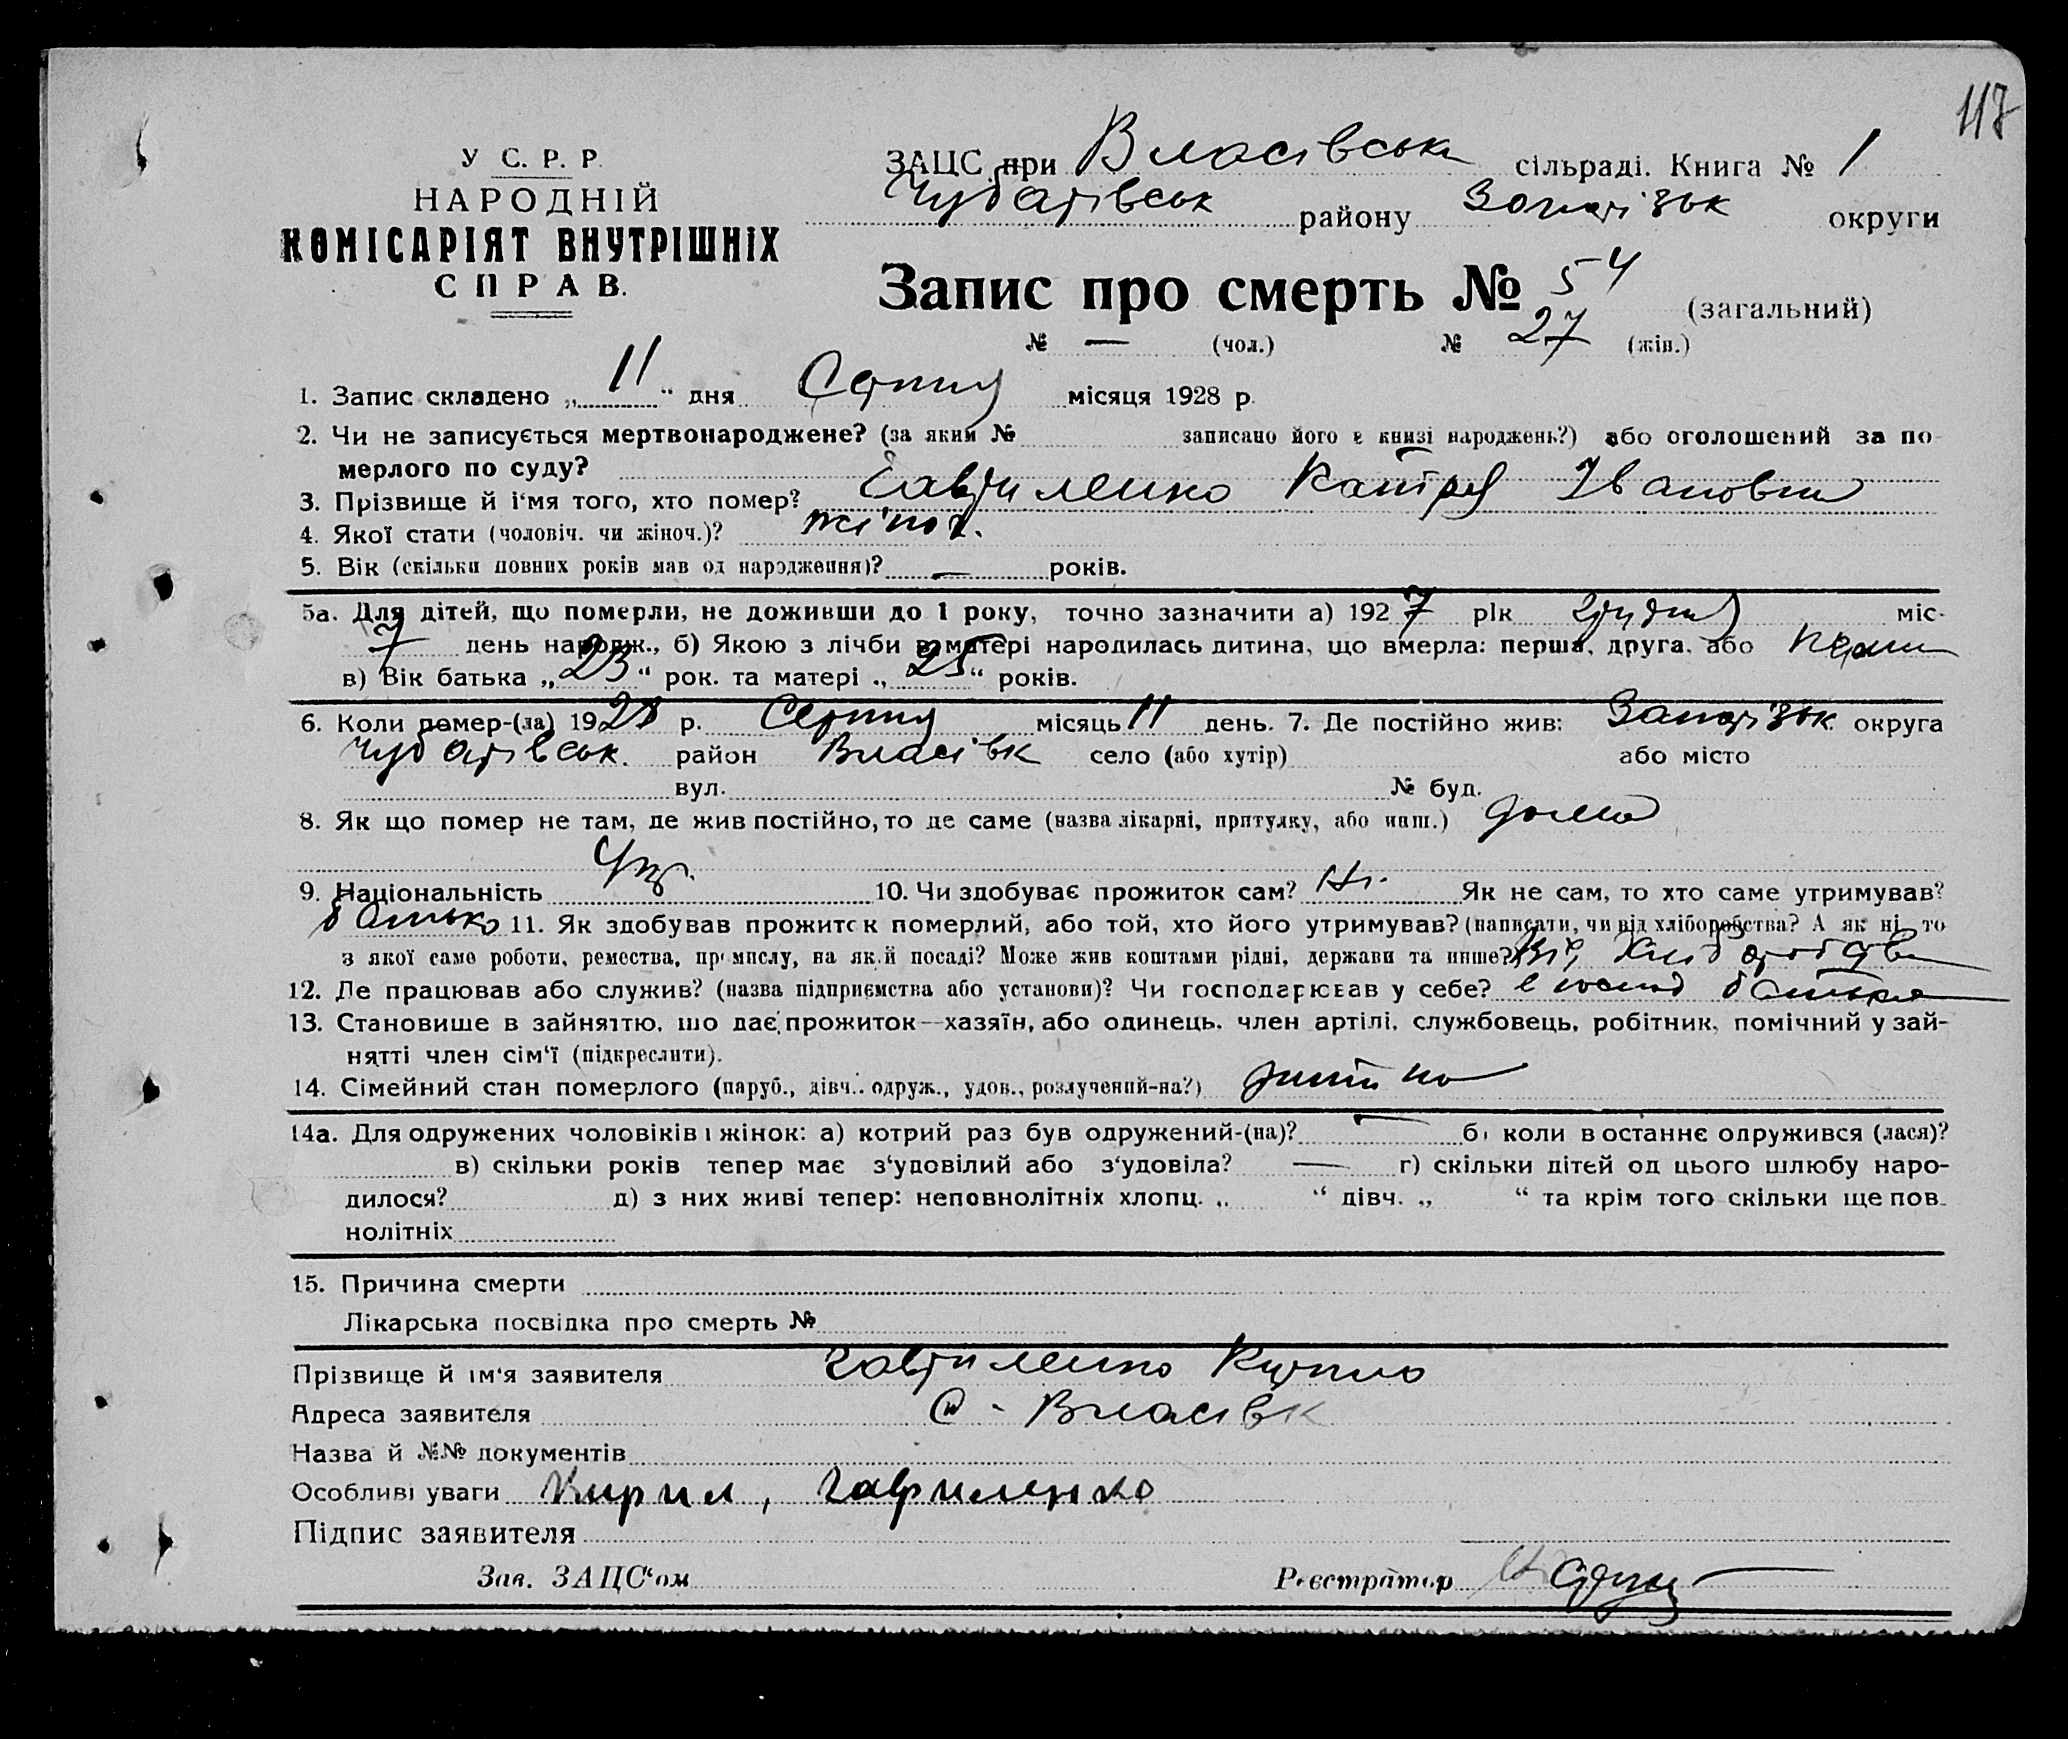 117
У С. Р. Р.
НАРОДНІЙ
КОМІСАРІЯТ ВНУТРІШНІХ
СПРАВ.
ЗАЦС при Власівськ сільраді. Книга № 1
Чубарівськ району Запорізьк округи
Запис про смерть № 54 (загальний)
№ — (чол.) № 27 (жін.)
1. Запис складено „ 11 “ дня Серпня місяця 1928 р.
2. Чи не записується мертвонароджене? (за яким № записано його в книзі народжень?) або оголошений за по
мерлого по суду?
3. Прізвище й і‘мя того, хто помер? Гавриленко Катря Івановна
4. Якої стати (чоловіч. чи жіноч.)? жіноч.
5. Вік (скільки повних років мав од народження)? — років.
5а. Для дітей, що померли, не доживши до 1 року, точно зазначити а) 1927 рік Грудня міс-
7 день народж., б) Якою з лічби в матері народилась дитина, що вмерла: перша, друга, або перша
в) Вік батька „ 23 “ рок. та матері „ 25 “ років.
6. Коли помер-(ла) 1928 р. Серпня місяць 11 день. 7. Де постійно жив: Запорізьк округа
Чубарівськ. район Власівк село (або хутір) або місто
вул. № буд.
8. Як що помер не там, де жив постійно, то де саме (назва лікарні, притулку, або инш.) дома
9. Національність Укр. 10. Чи здобуває прожиток сам? Ні. Як не сам, то хто саме утримував?
батько 11. Як здобував прожиток померлий, або той, хто його утримував? (написати, чи від хліборобства? А як ні, то
з якої саме роботи, ремества, промислу, на якій посаді? Може жив коштами рідні, держави та инше?) Від хліборобства
12. Де працював або служив? (назва підприємства або установи)? Чи господарював у себе? в госпОд батька
13. Становище в зайняттю, що дає прожиток—хазяїн, або одинець, член артілі, службовець, робітник, помічний у зай-
нятті член сім‘ї (підкреслити).
14. Сімейний стан померлого (паруб., дівч., одруж., удов., розлучений-на?) дитина
14а. Для одружених чоловіків і жінок: а) котрий раз був одружений-(на)? — б) коли в останнє одружився (лася)?
в) скільки років тепер має з‘удовілий або з‘удовіла? — г) скільки дітей од цього шлюбу наро-
дилося? д) з них живі тепер: неповнолітніх хлопц. „ “ дівч. „ “ та крім того скільки ще пов-
нолітніх
15. Причина смерти
Лікарська посвідка про смерть №
Прізвище й ім‘я заявителя Гавриленко Кирило
Адреса заявителя с. Власівк
Назва й №№ документів
Особливі уваги Кирил, Гавриленко
Підпис заявителя
Зав. ЗАЦС‘ом Реєстратор